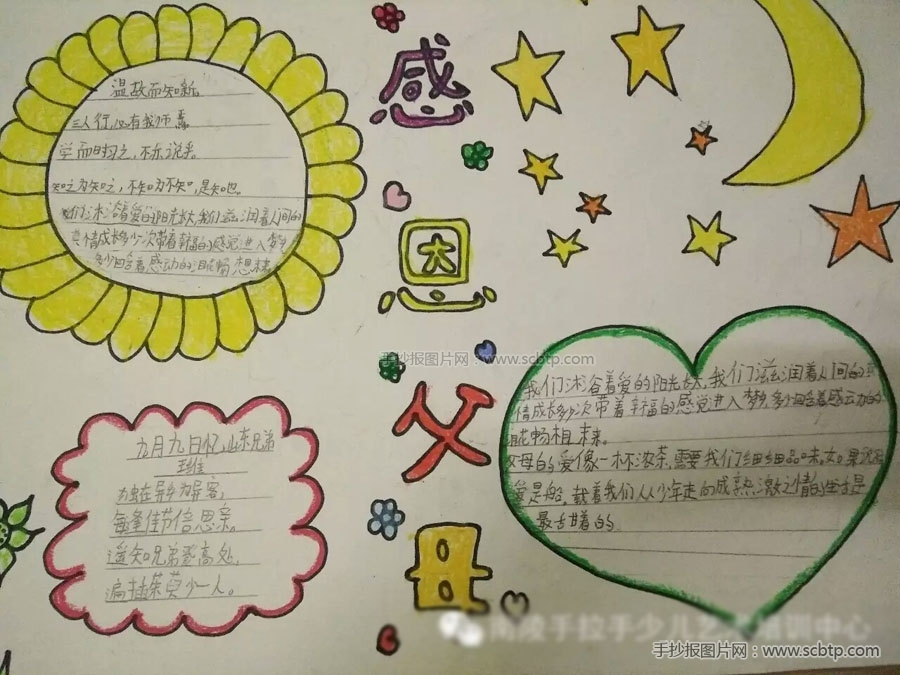 感恩父母
温故而知新。
三人行,必有我师焉
学而时习之,不乐说乎。
知之为知之,不知为不知,是知也。
我们沐浴着爱的阳光长大,我们滋润着人间的
真情成长多少次带着幸福的感觉进入梦乡
多少回含着感动的泪花畅想未来
九月九日忆山东兄弟
王维
独在异乡为异客,
每逢佳节信思亲。
遥知兄弟登高处,
遍插茱萸少一人。
我们沐谷着爱的阳光长大,我们滋润着人间的真
情成长多少次带着幸福的感觉进入梦乡,多少回含着感动的
泪花畅相未来。
父母的爱像一杯浓茶,需要我们细细品味,如果说
爱是船,载着我们从少年走向成熟
最甘着的
手抄报图片网:www.scbtp.com
南陵手拉手少儿艺术培训中心
手抄报图片网:www.scbtp.com